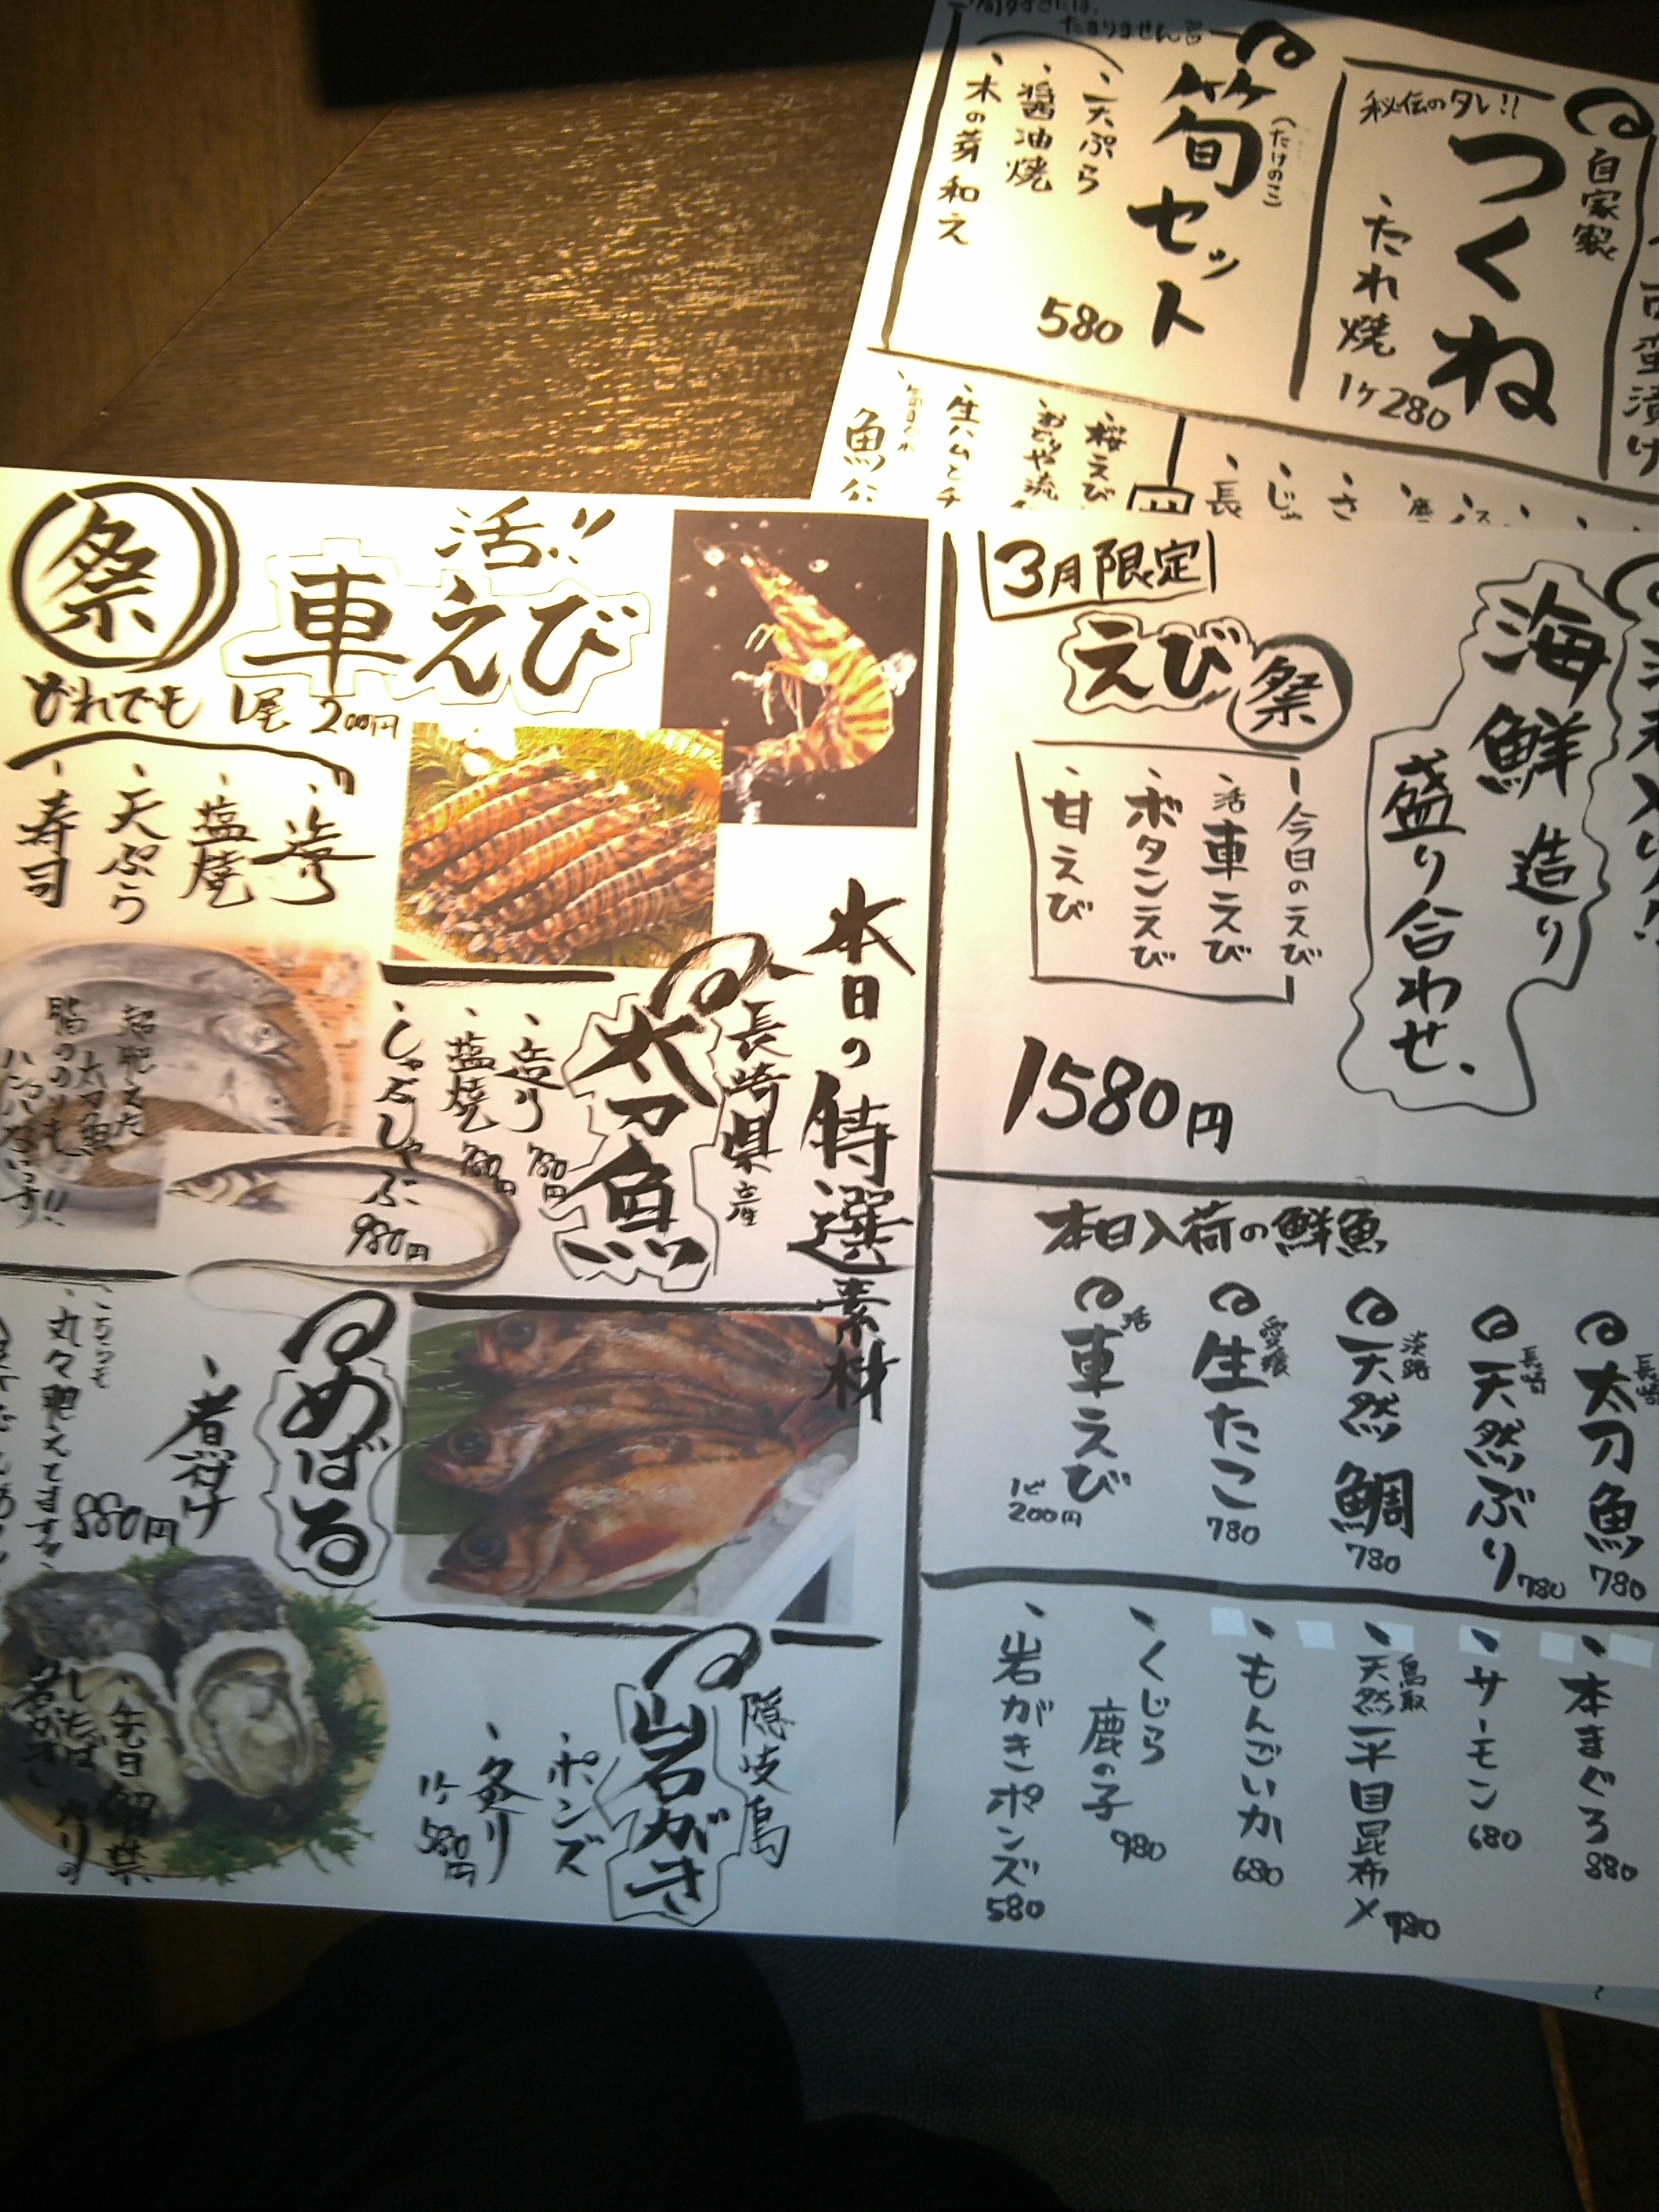 たまりません
筍セット
(たけのこ)
・天ぷら
・醤油焼
・木の芽和え
580
自家製
つくね
秘伝のタレ!!
・たれ焼
1ヶ280
・桜えび
・生ハムとチ
魚
長
じ
さ
祭
活!!
車えび
どれでも 1尾 200円
・造り
・塩焼
・天ぷら
・寿司
本日の特選素材
長崎県産
太刀魚
・造り 780円
・塩焼 780円
・しゃぶしゃぶ 980円
超肥えた
太刀魚
脂ののりも
ハンパないっす!!
めばる
・煮付け
880円
・こちらも
・丸々肥えてます
隠岐島
岩がき
・ポンズ
・炙り
1ヶ580円
・先日
海鮮造り
盛り合わせ
3月限定
えび祭
今日のえび
・活車えび
・ボタンえび
・甘えび
1580円
本日入荷の鮮魚
長崎 太刀魚 780
長崎 天然ぶり 780
淡路 天然鯛 780
愛媛 生たこ 780
活 車えび
1ピ 200円
・本まぐろ 880
・サーモン 680
・鳥取 天然平目昆布〆 780
・もんごいか 680
・くじら鹿の子 980
・岩がきポンズ 580